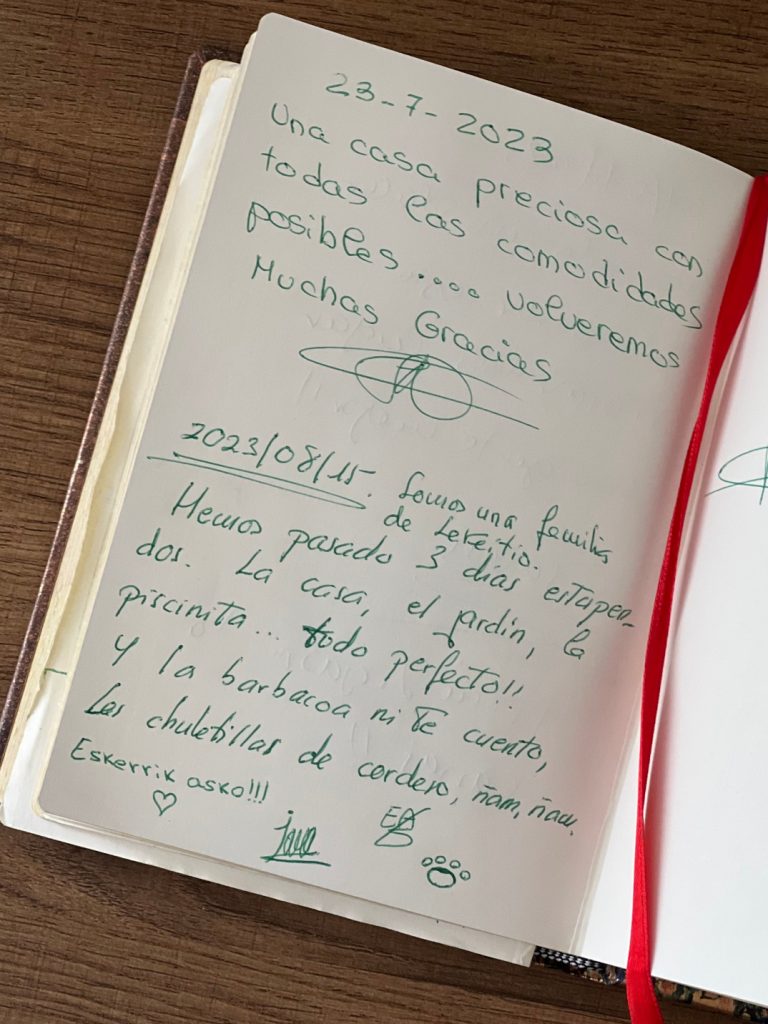 23-7-2023
Una casa preciosa con
todas las comodidades
posibles.... volveremos
Muchas Gracias
2023/08/15. Somos una familia
de Lekeitio.
Hemos pasado 3 días estupen-
dos. La casa, el jardín, la
piscinita... todo perfecto!!
Y la barbacoa ni te cuento,
Las chuletillas de cordero, ñam, ñam.
Eskerrik asko!!!